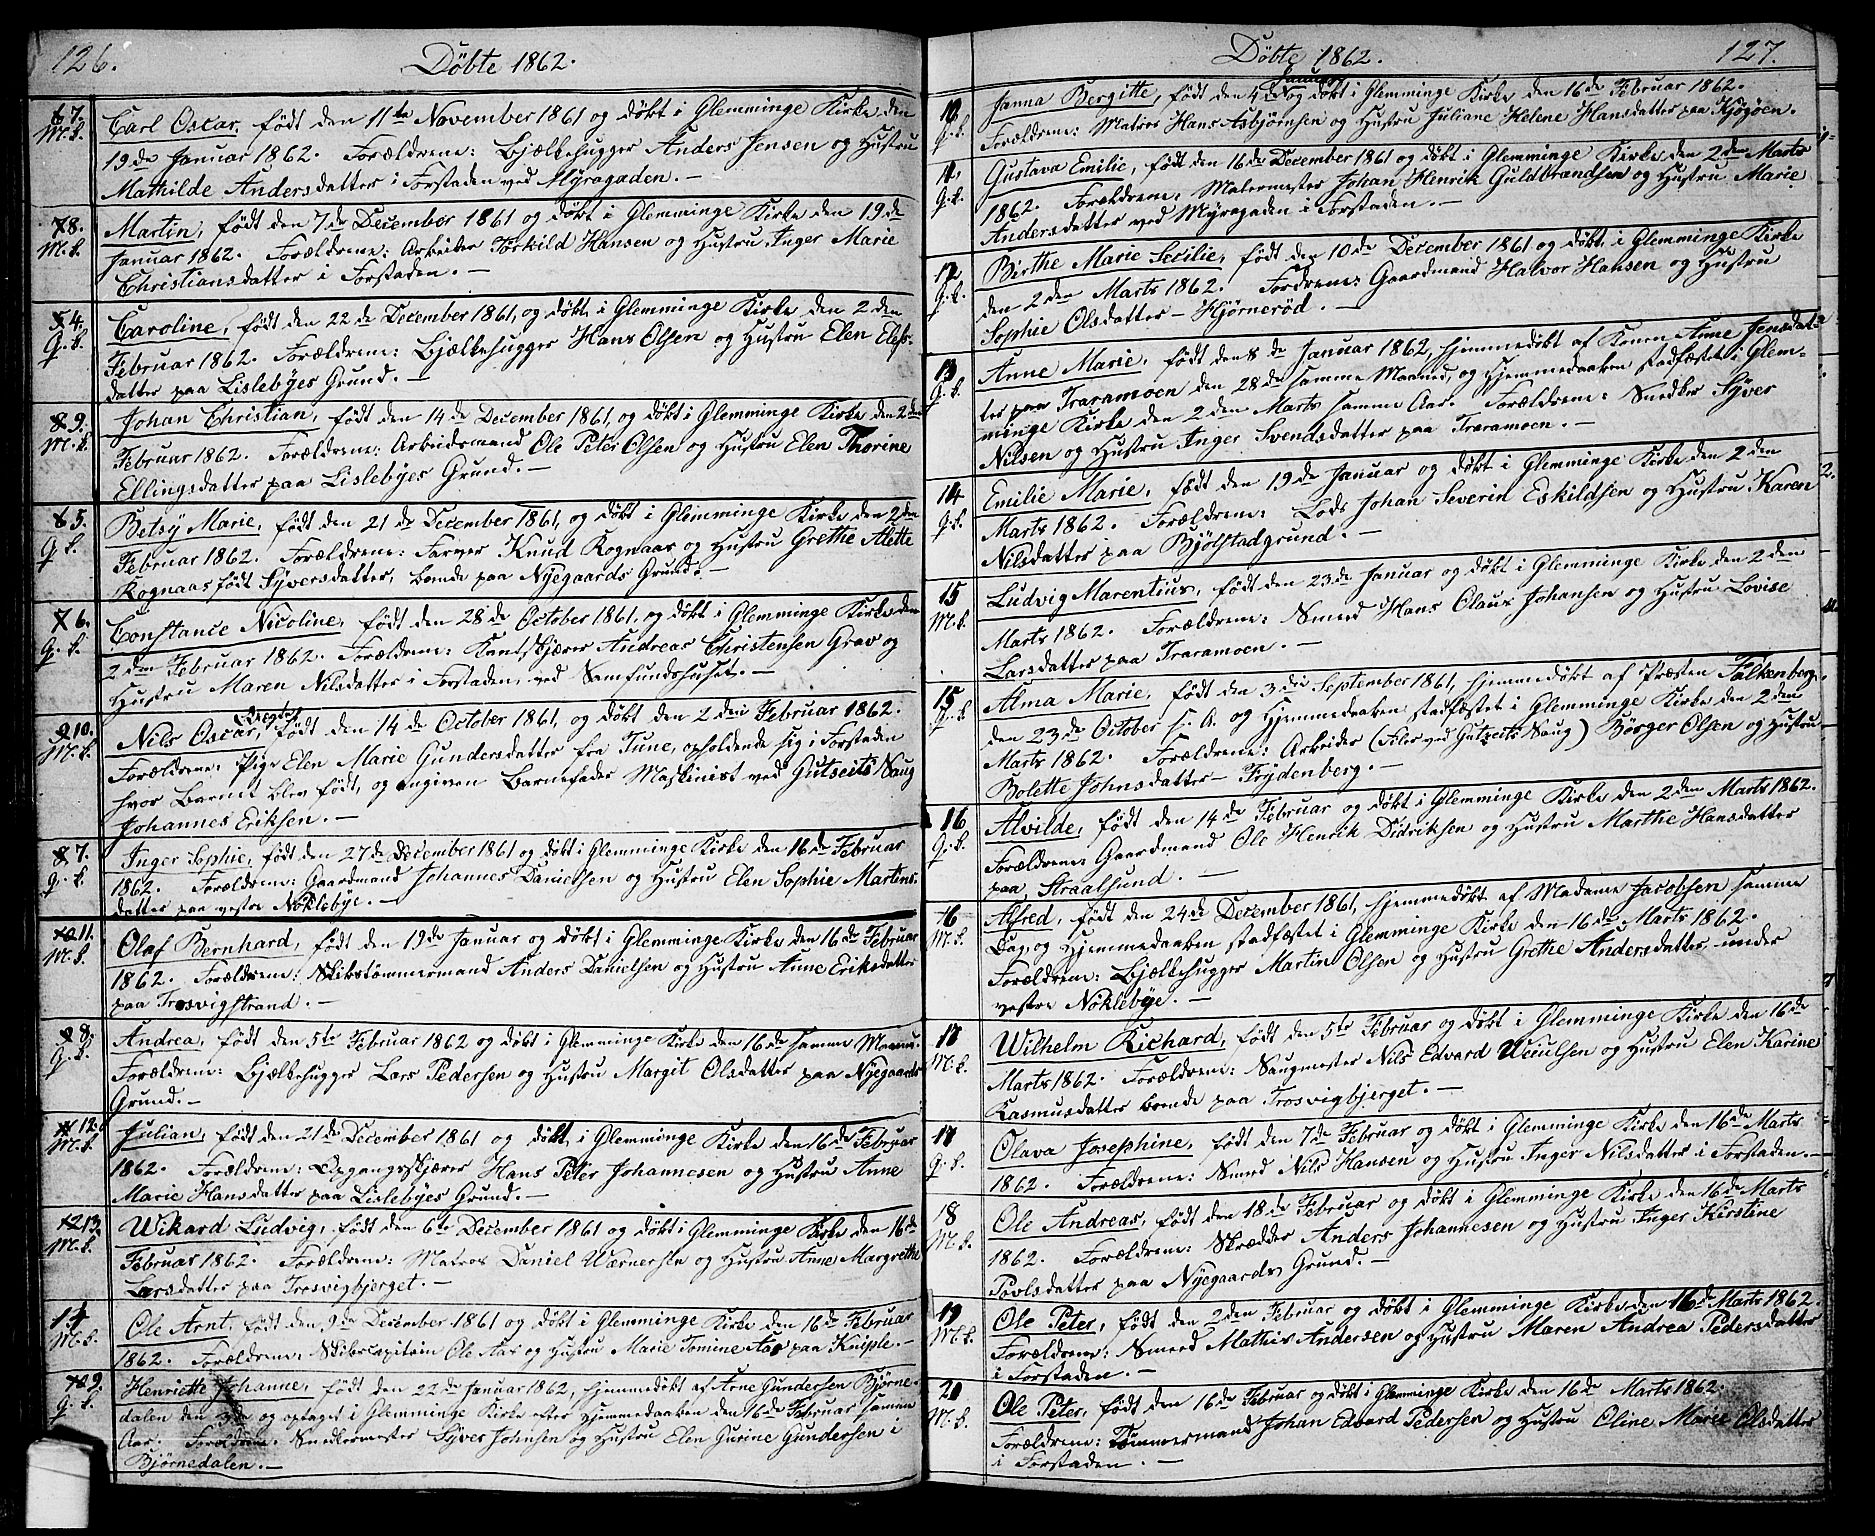 126.
Döbte 1862.
7.
M.k.
Carl Oscar, födt den 11te November 1861 og döbt i Glemminge Kirke den
19de Januar 1862. Forældrene: Bjælkehugger Anders Jensen og Hustru
Mathilde Andersdatter i Forstaden ved Myragaden.
8.
M.k.
Martin, födt den 7de December 1861 og döbt i Glemminge Kirke den 19de
Januar 1862. Forældrene: Arbeider Torkild Hansen og Hustru Inger Marie
Christiansdatter i Forstaden.
4.
G.k.
Caroline, födt den 22de December 1861, og döbt i Glemminge Kirke den 2den
Februar 1862. Forældrene: Bjælkehugger Hans Olsen og Hustru Elen Elefs-
datter paa Lislebyes Grund.
9.
M.k.
Johan Christian, födt den 14de December 1861, og döbt i Glemminge Kirke den 2den
Februar 1862. Forældrene: Arbeidsmand Ole Peter Olsen og Hustru Elen Thorine
Ellingsdatter paa Lislebyes Grund.
5.
G.k.
Betsy Marie, födt den 21de December 1861, og döbt i Glemminge Kirke den 2den
Februar 1862. Forældrene: Farver Knud Rognaas og Hustru Grethe Alette
Rognaas født Syversdatter, boende paa Nyegaards Grund.
6.
G.k.
Constance Nicoline, födt den 28de October 1861, og döbt i Glemminge Kirke den
2den Februar 1862. Forældrene: Kantskjærer Andreas Christensen Grav og
Hustru Maren Nilsdatter i Forstaden, ved Samfundshuset.
10.
M.k.
Uægte
Nils Oscar, födt den 14de October 1861, og döbt den 2den Februar 1862.
Forældrene: Pige Elen Marie Gundersdatter fra Tune, opholdende sig i Forstaden
hvor Barnet blev født, og angiven Barnefader Maskinist ved Gutseits Saug
Johannes Eriksen.
7.
G.k.
Inger Sophie, födt den 27de December 1861 og döbt i Glemminge Kirke den 16de Februar
1862. Forældrene: Gaardmand Johannes Danielsen og Hustru Elen Sophie Martins-
datter paa vestre Nöklebye.
11.
M.k.
Olaf Bernhard, födt den 19de Januar og döbt i Glemminge Kirke den 16de Februar
1862. Forældrene: Skibstömmermand Anders Danielsen og Hustru Anne Eriksdatter
paa Trosvigstrand.
8.
G.k.
Andrea, födt den 5te Februar 1862 og döbt i Glemminge Kirke den 16de samme Maaned.
Forældrene: Bjælkehugger Lars Pedersen og Hustru Margit Olsdatter paa Nyegaards
Grund.
12.
M.k.
Julian, födt den 21de December 1861 og döbt i Glemminge Kirke den 16de Februar
1862. Forældrene: Opgangsskjærer Hans Peter Johannesen og Hustru Anne
Marie Hansdatter paa Lislebyes Grund.
13.
M.k.
Wikard Ludvig, födt den 6te December 1861 og döbt i Glemminge Kirke den 16de
Februar 1862. Forældrene: Matros Daniel Wærnersen og Hustru Anne Margrethe
Larsdatter paa Trosvigbjerget.
14
M.k.
Ole Arnt, födt den 9de December 1861 og döbt i Glemminge Kirke den 16de Februar
1862. Forældrene: Skibscapitain Ole Aas og Hustru Marie Tomine Aas paa Kniple.
9.
G.k.
Henriette Johanne, födt den 22de Januar 1862, hjemmedöbt af Arne Gundersen Björne-
dalen den og optaget i Glemminge Kirke efter hjemmedaaben den 16de Februar samme
Aar. Forældrene: Snedkermester Syver Johnsen og Hustru Elen Gurine Gundersen i
Björnedalen.
Döbte 1862.
127.
10
G.k.
Januar
Janna Bergitte, födt den 4de og döbt i Glemminge Kirke den 16de Februar 1862.
Forældrene: Matros Hans Asbjörnsen og Hustru Juliane Helene Hansdatter paa Kjøgöen.
11
G.k.
Gustava Emilie, födt den 16de December 1861 og döbt i Glemminge Kirke den 2den Marts
1862. Forældrene: Malermester Johan Henrik Guldbrandsen og Hustru Marie
Andersdatter ved Myragaden i Forstaden.
12
G.k.
Birthe Marie Secilie, födt den 10de December 1861, og döbt i Glemminge Kirke
den 2den Marts 1862. Fordrene: Gaardmand Halvor Hansen og Hustru
Sophie Olsdatter – Hjørneröd.
13
G.k.
Anne Marie, födt den 8de Januar 1862, hjemmedöbt af Konen Anne Jensdat-
ter paa Traramoen den 28de samme Maaned, og Hjemmedaaben stadfæstet i Glem-
minge Kirke den 2den Marts samme Aar. Forældrene: Snedker Syver
Nilsen og Hustru Inger Svendsdatter paa Traramoen.
14
G.k.
Emilie Marie, födt den 19de Januar og döbt i Glemminge Kirke den 2den
Marts 1862. Forældrene: Lods Johan Severin Eskildsen og Hustru Karen
Nilsdatter paa Bjölstadgrund.
15
M.k.
Ludvig Marentius, födt den 23de Januar og döbt i Glemminge Kirke den 2den
Marts 1862. Forældrene: Smed Hans Olaus Johansen og Hustru Lovise
Larsdatter paa Traramoen.
15
G.k.
Alma Marie, födt den 3die September 1861, hjemmedöbt af Præsten Falkenberg,
den 23de October s. A. og Hjemmedaaben stadfæstet i Glemminge Kirke den 2den
Marts 1862. Forældrene: Arbeider (Filer ved Gutzeits Saug) Börger Olsen og Hustru
Bolette Johnsdatter – Frydenberg.
16
G.k.
Alvilde, födt den 14de Februar og döbt i Glemminge Kirke den 2den Marts 1862.
Forældrene: Gaardmand Ole Henrik Didriksen og Hustru Marthe Hansdatter
paa Straalsund.
16
M.k.
Alfred, födt den 24de December 1861, hjemmedöbt af Madame Jacobsen samme
Dag og Hjemmedaaben stadfæstet i Glemminge Kirke den 16de Marts 1862.
Forældrene: Bjælkehugger Martin Olsen og Hustru Grethe Andersdatter under
vestre Nöklebye.
17
M.k.
Wilhelm Richard, födt den 5te Februar og döbt i Glemminge Kirke den 16de
Marts 1862. Forældrene: Saugmester Nils Edvard Weiulsen og Hustru Elen Karine
Rasmusdatter boende paa Trosvigbjerget.
17
G.k.
Olava Josephine, födt den 7de Februar og döbt i Glemminge Kirke den 16de Marts
1862. Forældrene: Smed Nils Hansen og Hustru Inger Nilsdatter i Forstaden.
18
M.k.
Ole Andreas, födt den 18de Februar og döbt i Glemminge Kirke den 16de Marts
1862. Forældrene: Skrædder Anders Johannesen og Hustru Inger Kirstine
Povlsdatter paa Nyegaards Grund.
19
M.k.
Ole Peter, födt den 2den Februar og döbt i Glemminge Kirke den 16de Marts 1862.
Forældrene: Smed Mathis Andersen og Hustru Maren Andrea Pedersdatter
i Forstaden.
20
M.k.
Ole Peter, födt den 16de Februar og döbt i Glemminge Kirke den 16de Marts 1862.
Forældrene: Tömmermand Johan Edvard Pedersen og Hustru Oline Marie Olsdatter
i Forstaden.